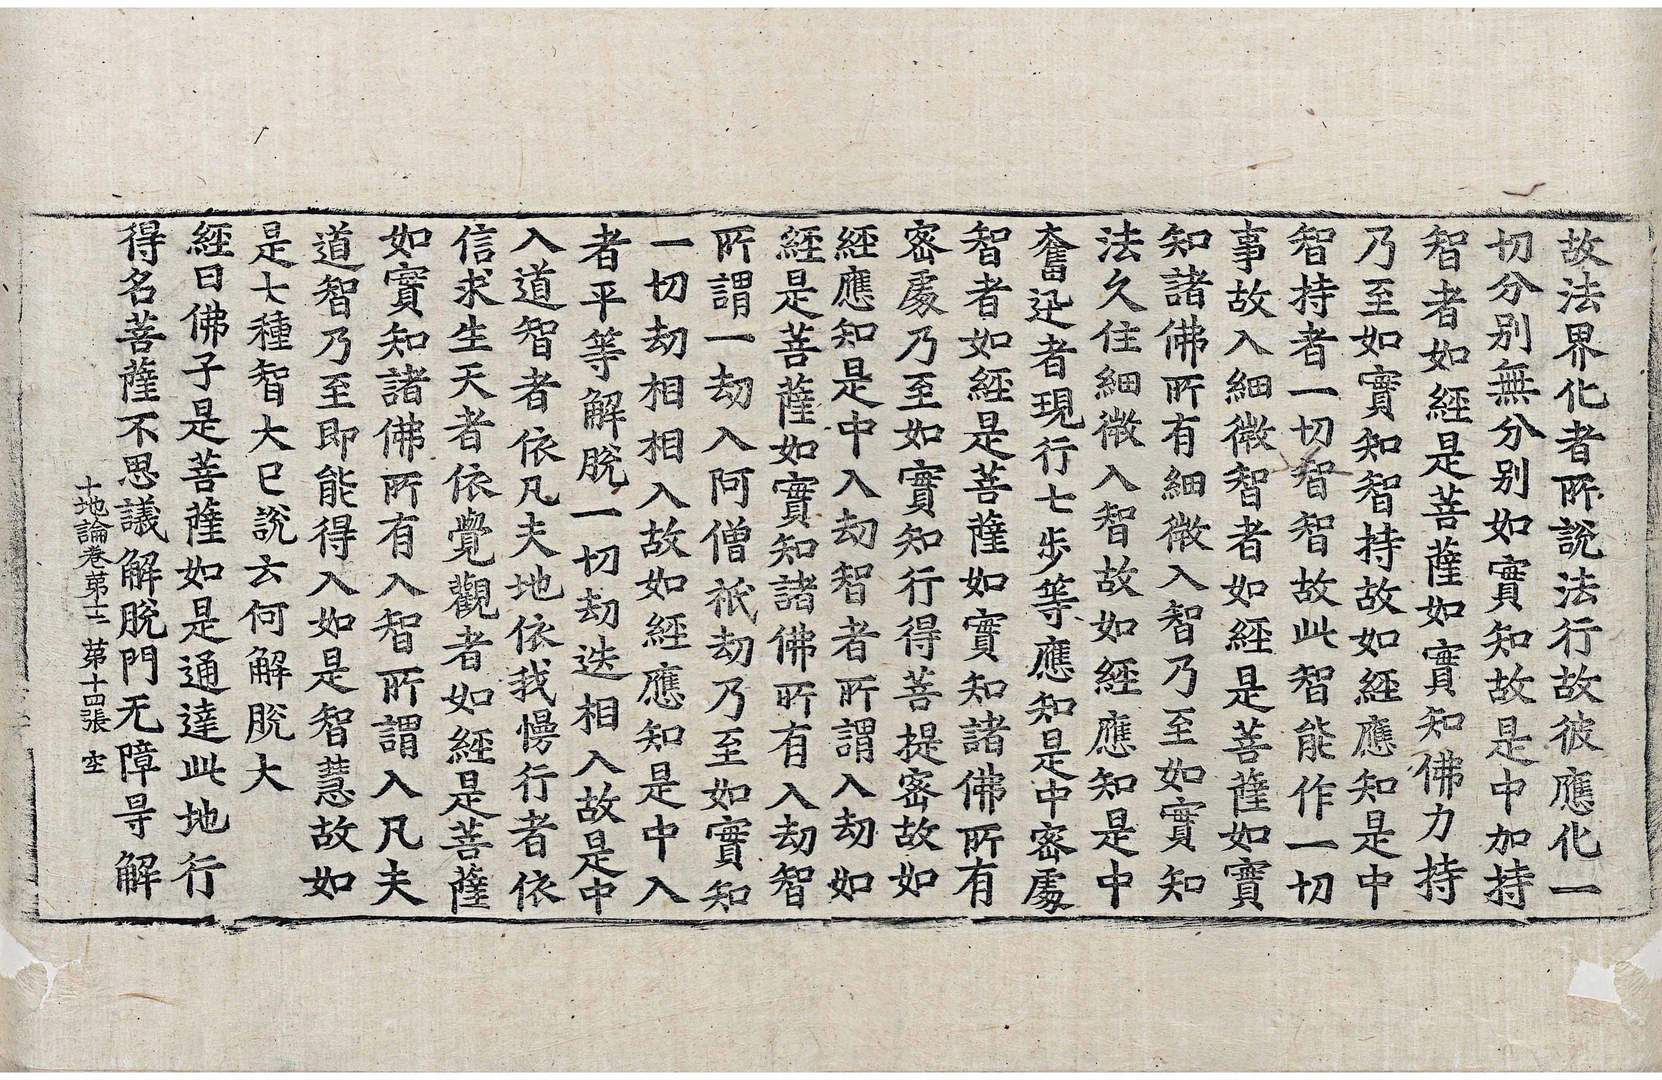 故法界化者所說法行故彼應化一
切分别無分别如實知故是中加持
智者如經是菩薩如實知佛力持
乃至如實知智持故如經應知是中
智持者一切智智故此智能作一切
事故入細微智者如經是菩薩如實
知諸佛所有細微入智乃至如實知
法久住細微入智故如經應知是中
奮迅者現行七步等應知是中密處
智者如經是菩薩如實知諸佛所有
密處乃至如實知行得菩提密故如
經應知是中入劫智者所謂入劫如
經是菩薩如實知諸佛所有入劫智
所謂一劫入阿僧祇劫乃至如實知
一切劫相相入故如經應知是中入
者平等解脫一切劫迭相入故是中
入道智者依凡夫地依我慢行者依
信求生天者依覺觀者如經是菩薩
如實知諸佛所有入智所謂入凡夫
道智乃至即能得入如是智慧故如
是七種智大已說云何解脫大
經曰佛子是菩薩如是通達此地行
得名菩薩不思議解脫門无障㝵解
十地論卷第十二 第十四張 空